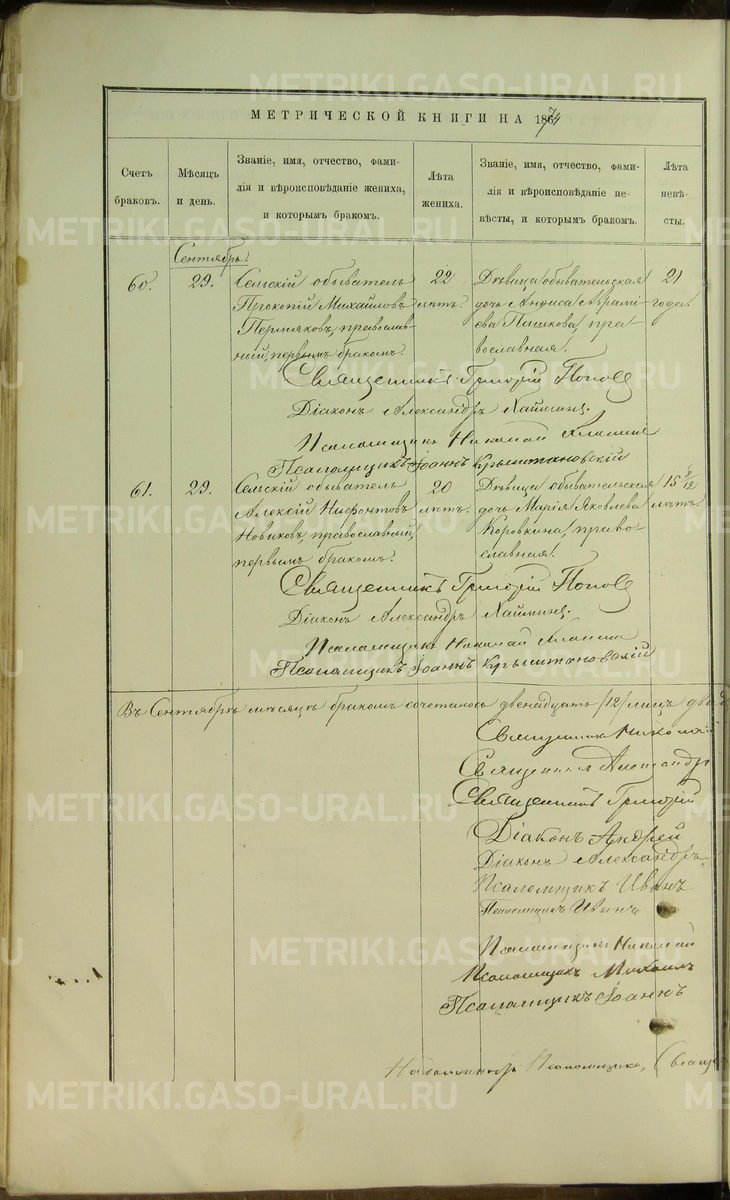 МЕТРИЧЕСКОЙ КНИГИ НА 1874
Счетъ браковъ.
Мѣсяцъ и день.
Званіе, имя, отчество, фами-
лія и вѣроисповѣданіе жениха,
и которымъ бракомъ.
Лѣта жениха.
Званіе, имя, отчество, фами-
лія и вѣроисповѣданіе не-
вѣсты, и которымъ бракомъ.
Лѣта невѣ-
сты.
Сентябрь.
60. 29. Сельскій обыватель 22 Дѣвица обывательская 21
Прокопій Михайловъ лѣтъ. дочь Анфиса Аврамі- года.
Пермяковъ, православ- ева Пашкова, пра-
ный, первымъ бракомъ. вославная.
Священникъ Григорій Поповъ
Діаконъ Александръ
Псаломщикъ Николай
Псаломщикъ Іоаннъ Крыштановскій
61. 29. Сельскій обыватель 20 Дѣвица обывательская 15 8/12
Алексій Нифонтовъ лѣтъ. дочь Марія Яковлева лѣтъ.
Новиковъ, православный, Коровкина, право-
первымъ бракомъ. славная.
Священникъ Григорій Поповъ
Діаконъ Александръ
Псаломщикъ Николай
Псаломщикъ Іоаннъ Крыштановскій
Въ Сентябрѣ мѣсяцѣ бракомъ сочеталось двенадцать /12/ лицъ
Священникъ Николай
Священникъ Александръ
Священникъ Григорій
Діаконъ Андрей
Діаконъ Александръ
Псаломщикъ Иванъ
Псаломщикъ Иванъ
Псаломщикъ Николай
Псаломщикъ Михаилъ
Псаломщикъ Іоаннъ
Псаломщика,
METRIKI.GASO-URAL.RU